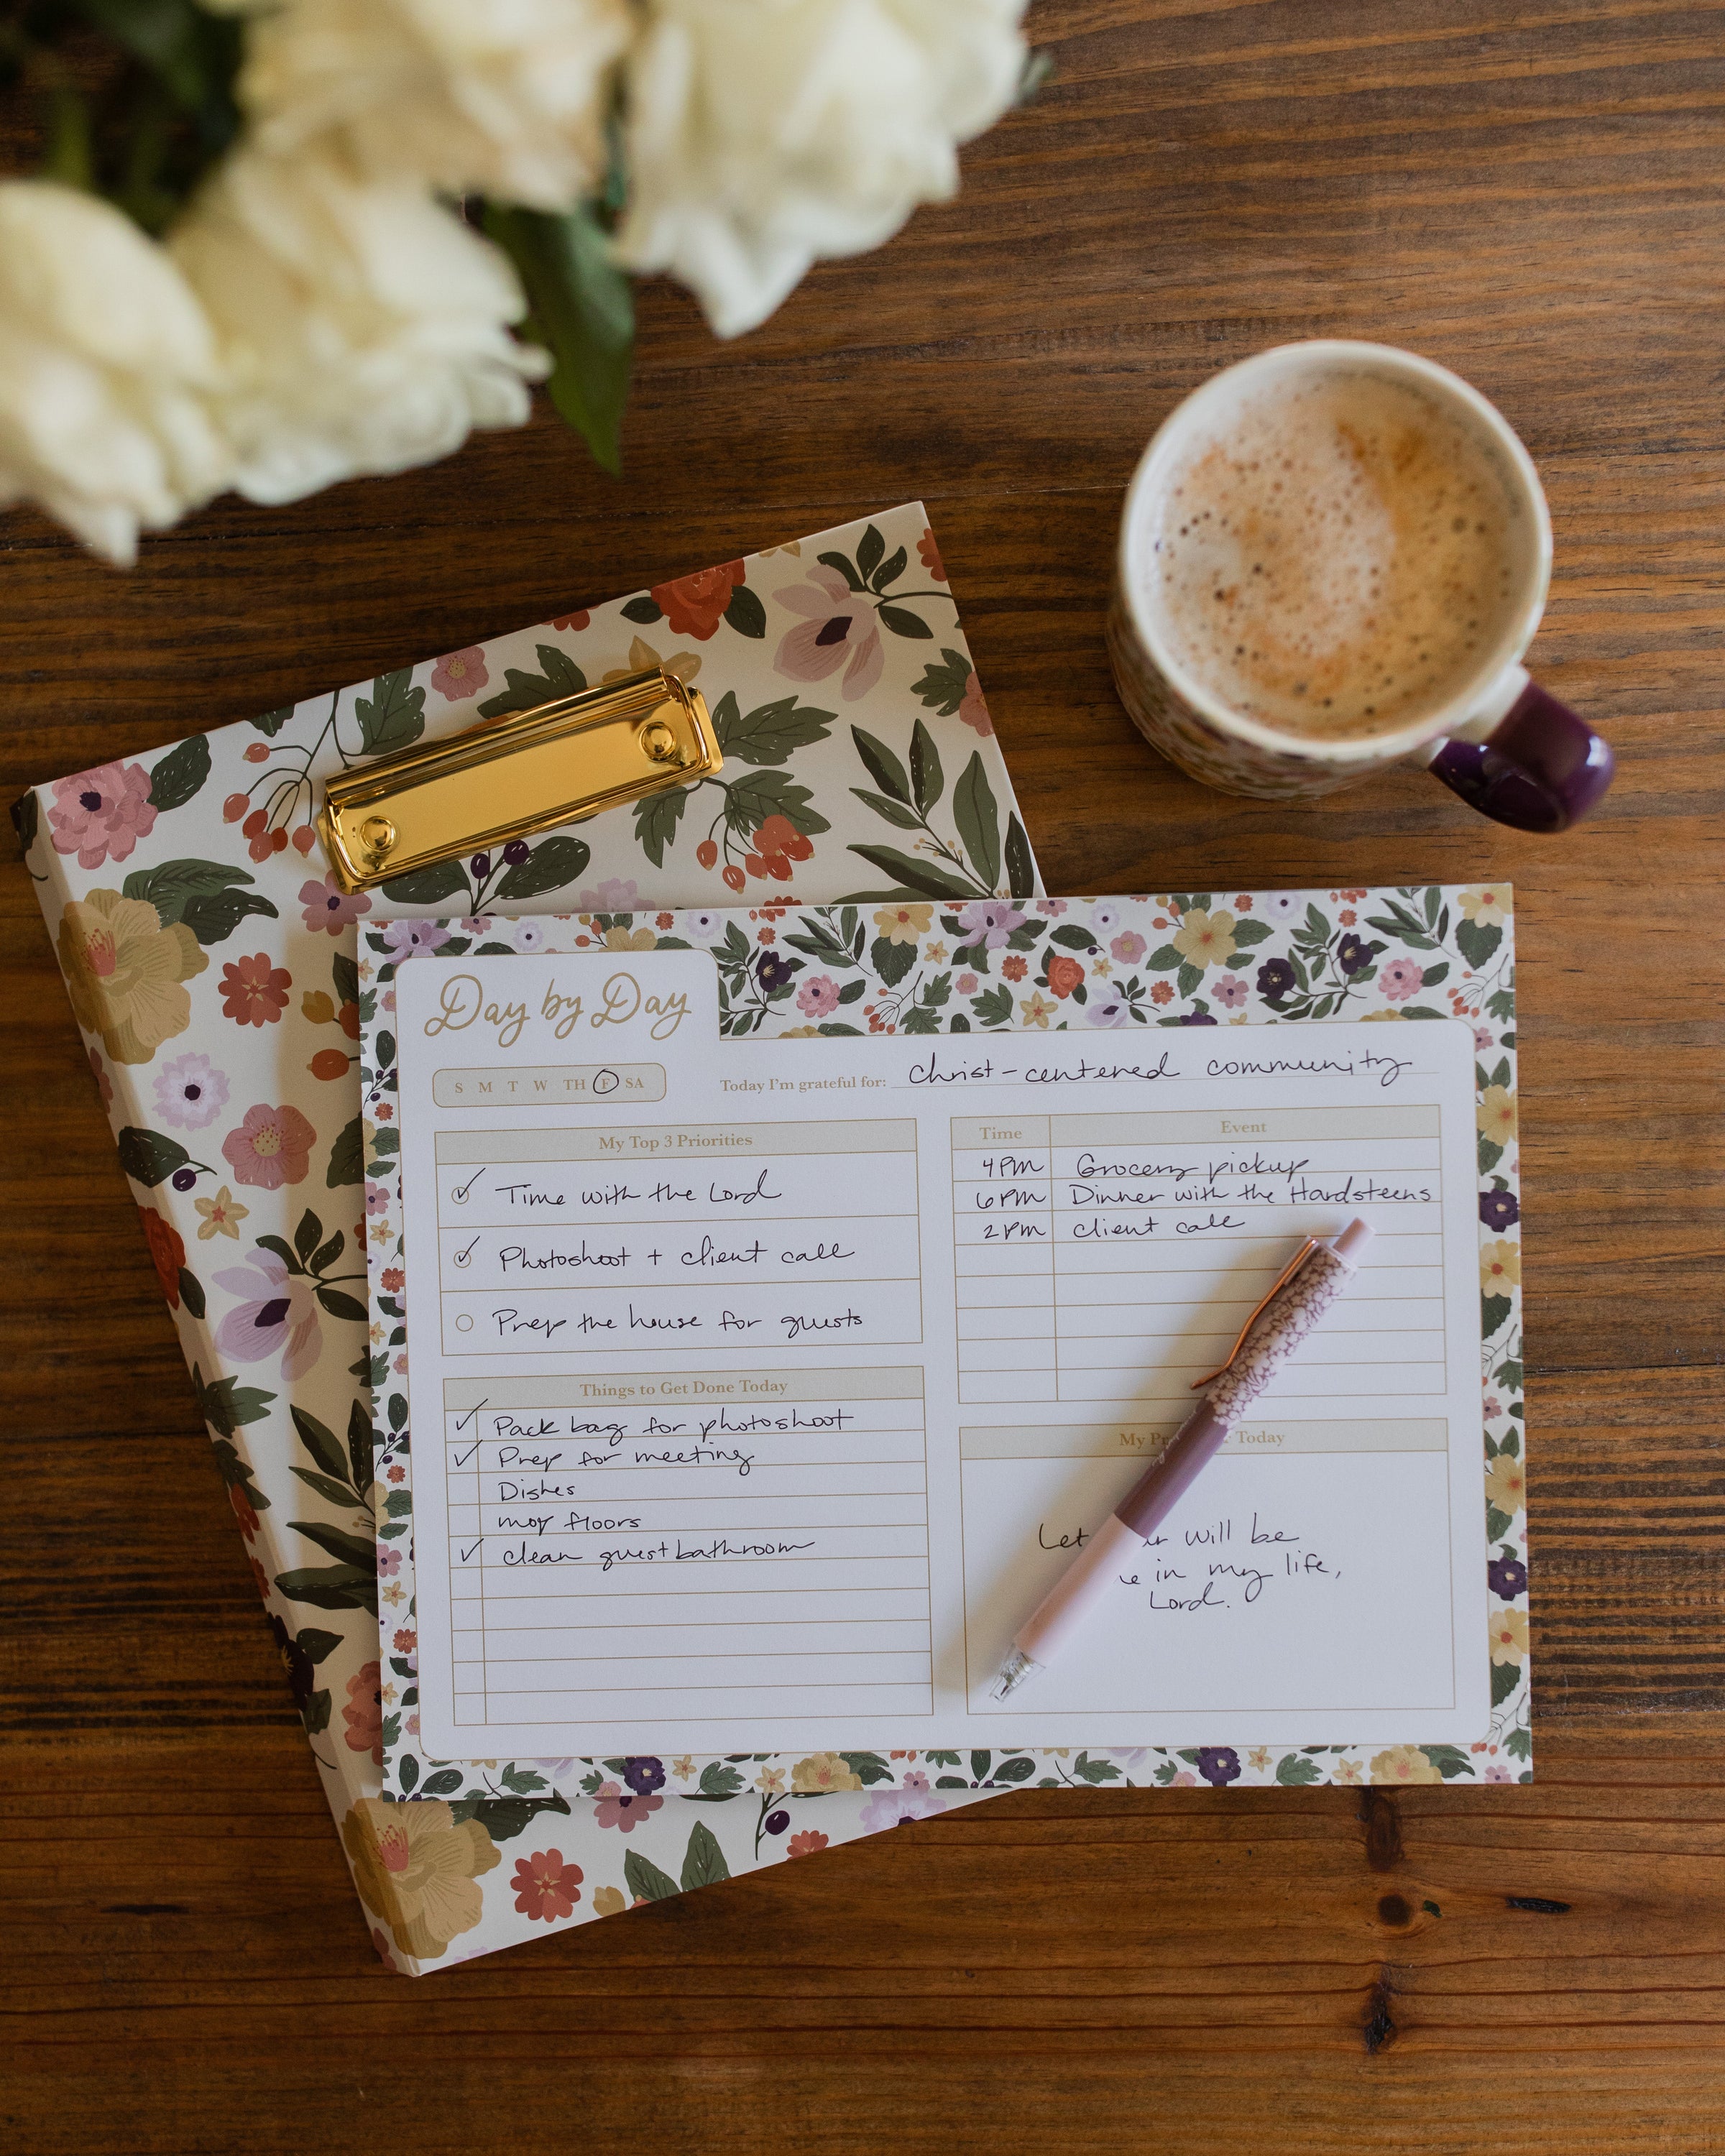 Day by Day
S M T W TH F SA
Today I'm grateful for: Christ-centered community
My Top 3 Priorities
Time with the Lord
Photoshoot + client call
Prep the house for guests
Things to Get Done Today
Pack bag for photoshoot
Prep for meeting
Dishes
mop floors
clean guest bathroom
Time Event
4PM Grocery pickup
6PM Dinner with the Hardsteens
2PM client call
My Today
Let will be
in my life,
Lord.